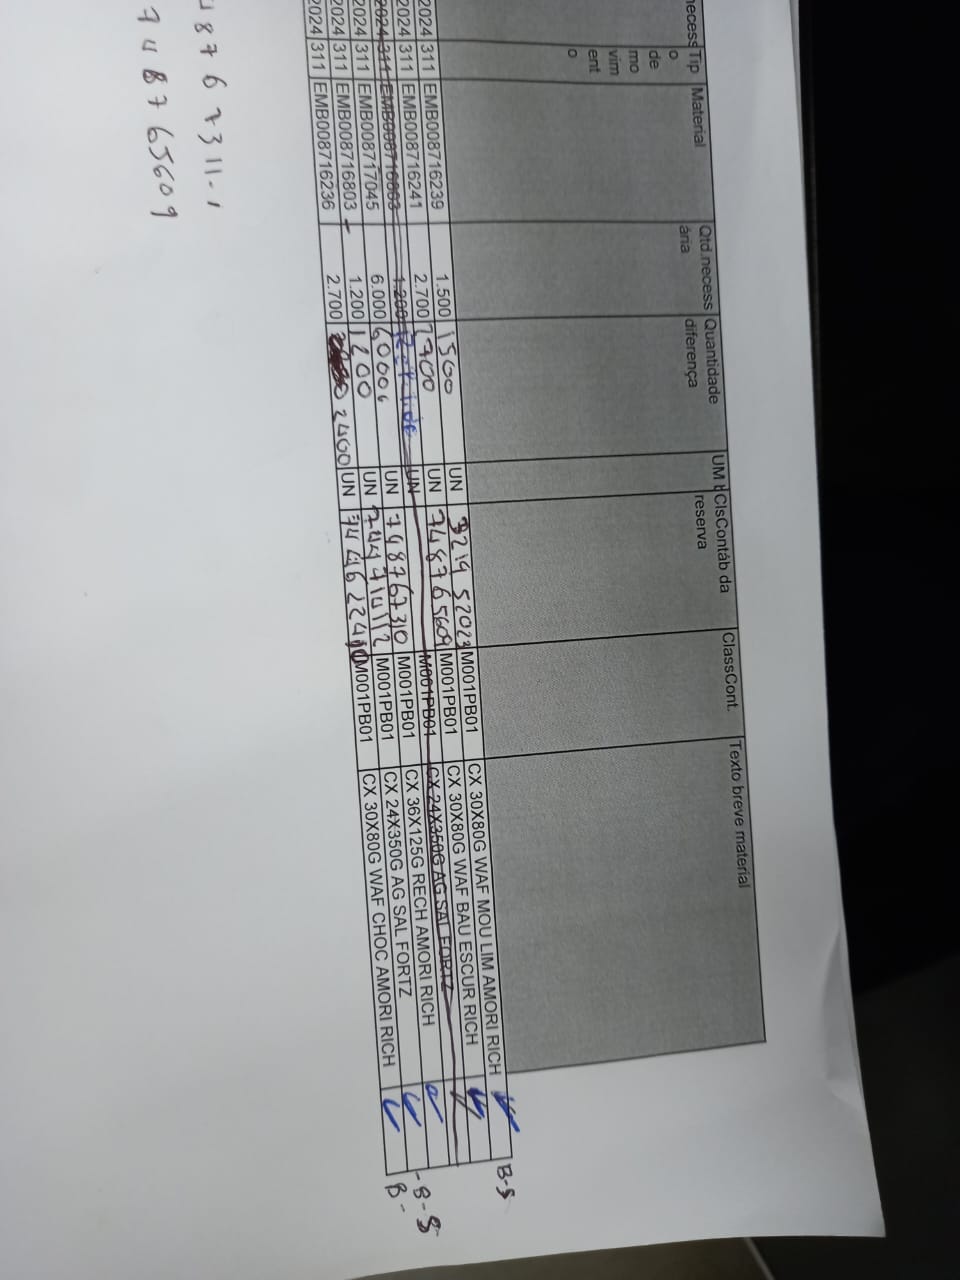 necess Tip o de mo vim ent o Material Qtd.necess ária Quantidade diferença UM ClsContáb da reserva ClassCont. Texto breve material
2024 311 EMB008716239 1.500 1500 UN 3219 52023 M001PB01 CX 30X80G WAF MOU LIM AMORI RICH B-S
2024 311 EMB008716241 2.700 2700 UN 748765609 M001PB01 CX 30X80G WAF BAU ESCUR RICH
2024 311 EMB008716803 1.200 UN M001PB01 CX 24X350G AG SAL FORTZ
2024 311 EMB008717045 6.000 6000 UN 748767310 M001PB01 CX 36X125G RECH AMORI RICH
2024 311 EMB008716803 1.200 1200 UN M001PB01 CX 24X350G AG SAL FORTZ -B-S
2024 311 EMB008716236 2.700 2400 UN M001PB01 CX 30X80G WAF CHOC AMORI RICH B-
4 8 7 6 7 3 11-1
7 4 8 7 65609